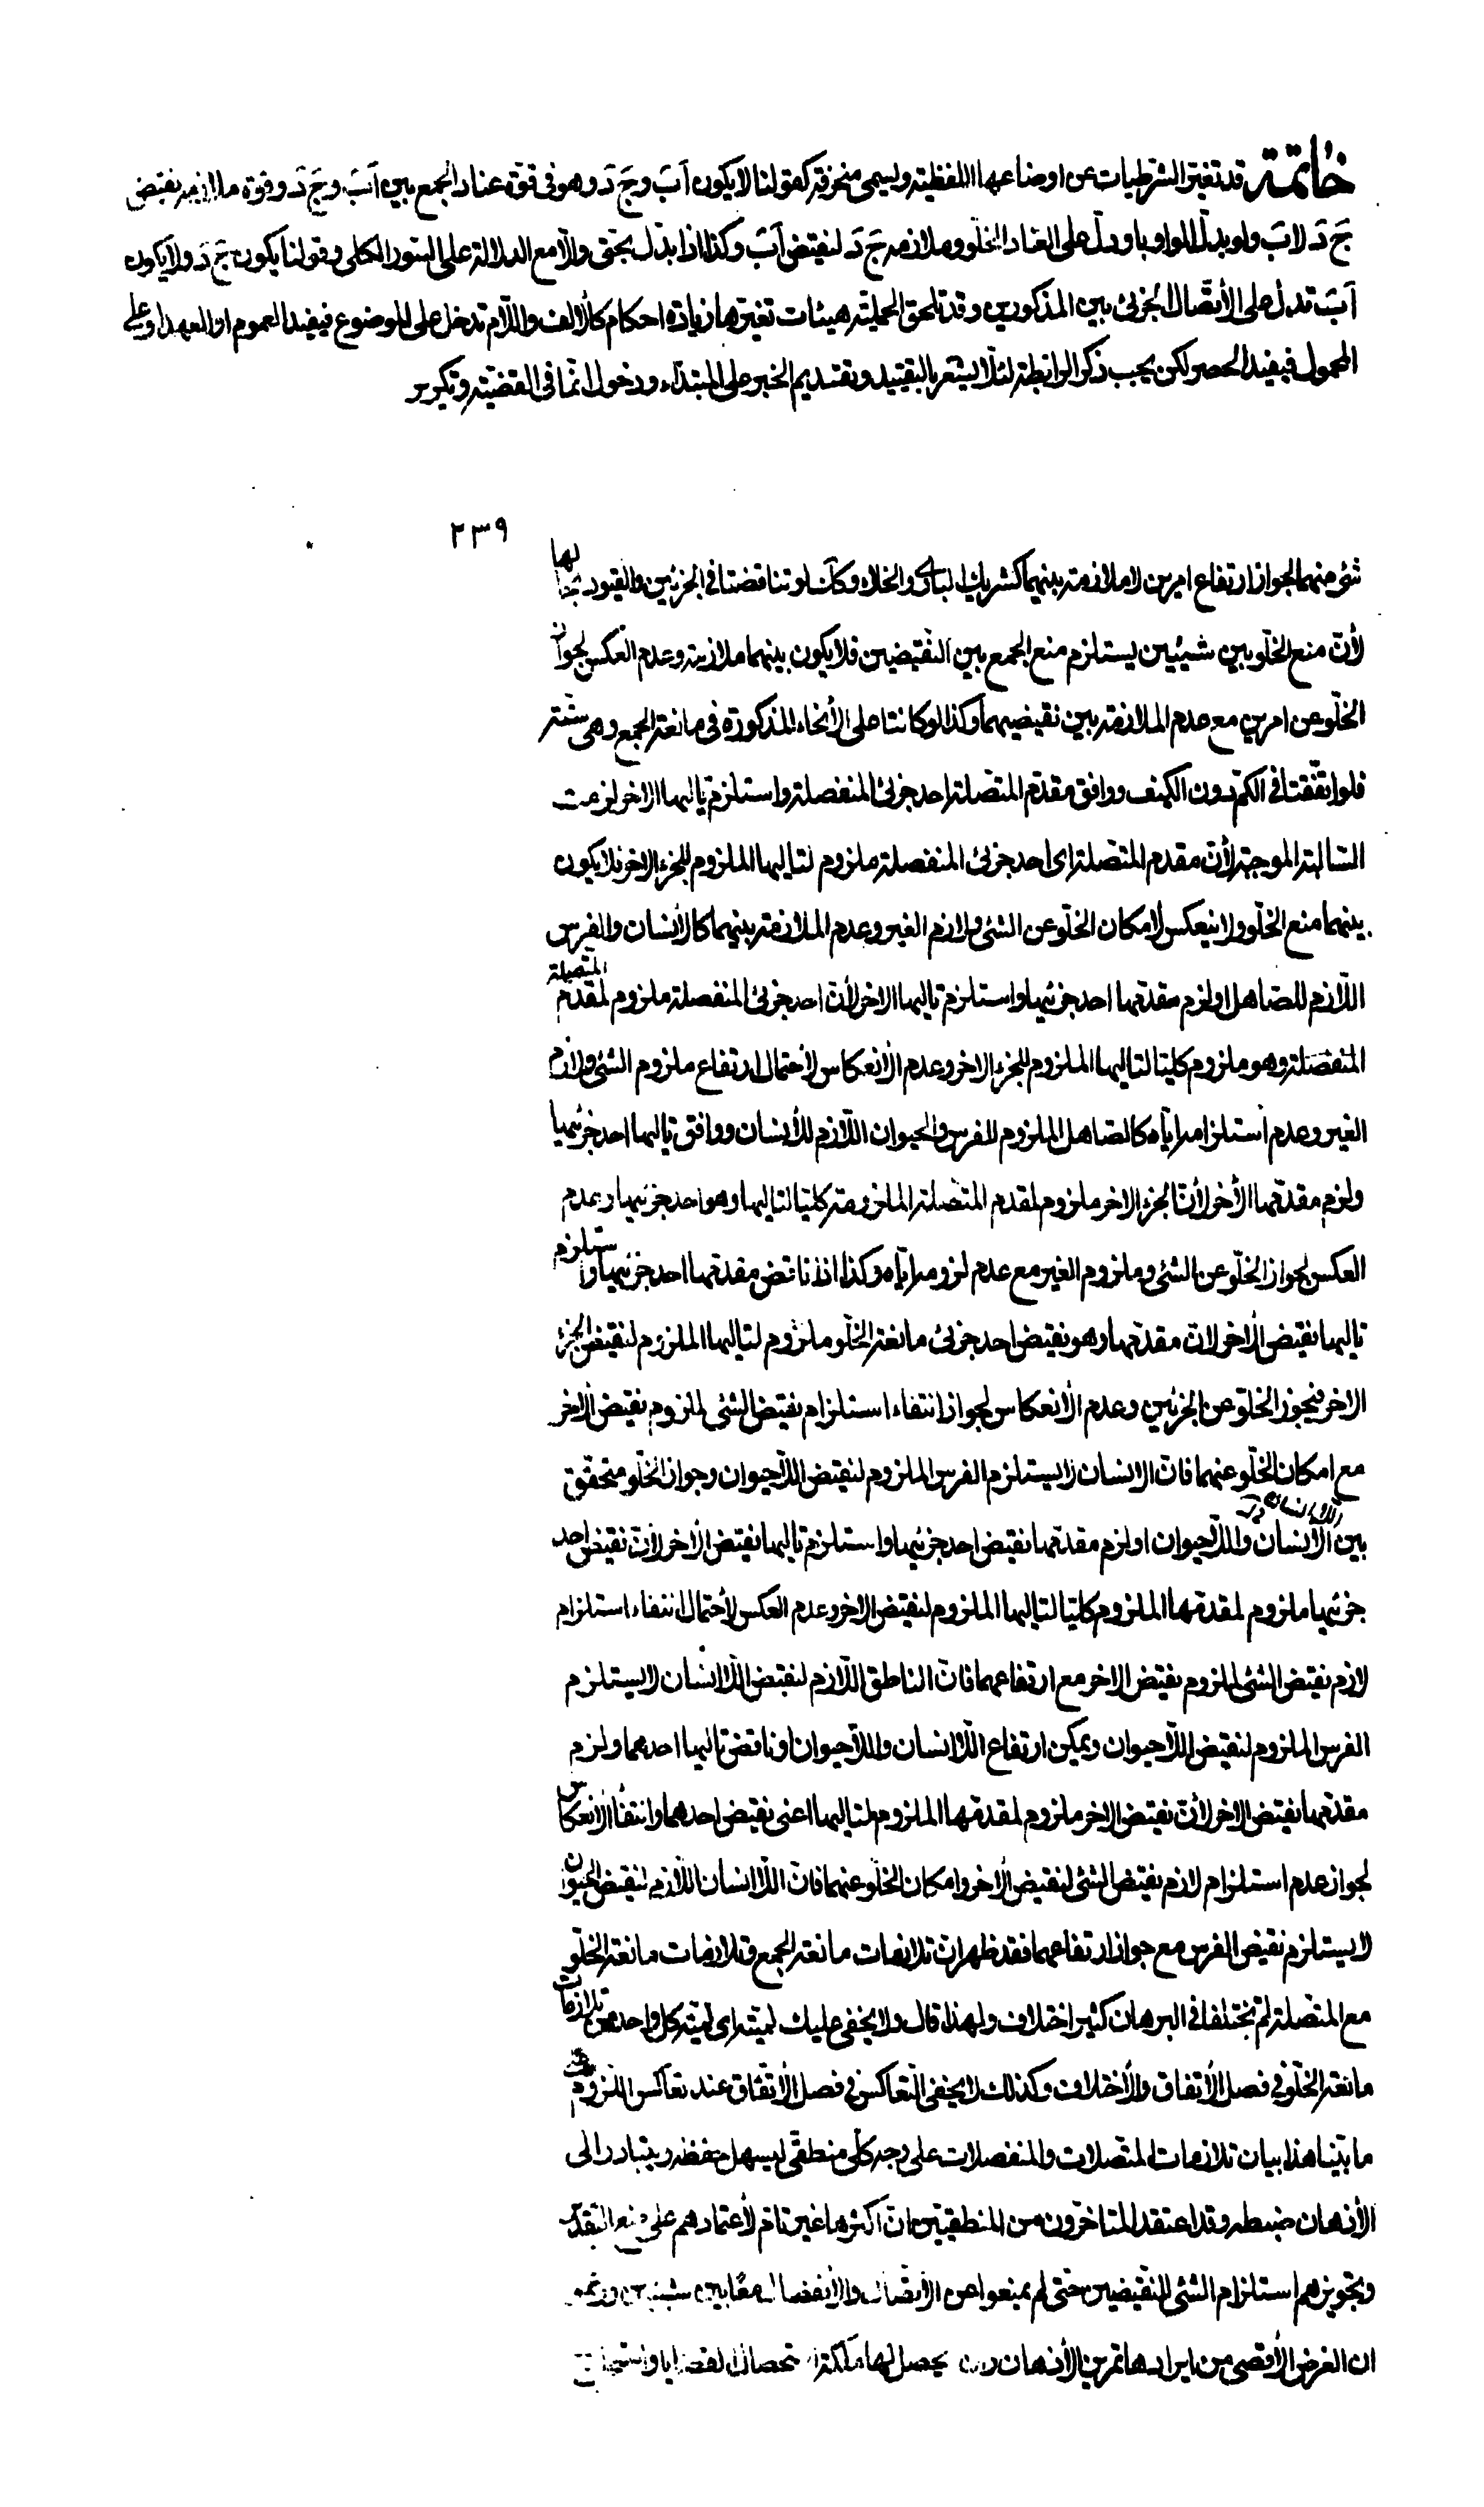 خاتمة قد تغير الشرطيات عن اوضاعها اللفظية ويسمى منحرفة كقولنا لا يكون اَبَ وجَ دَ وهو فى قوة عناد الجمع بين اَبَ وجَ دَ وقوة ملازمه نقيض
جَ دَ لاَبَ ولو بدل الواو باو دل على العناد الخلو وملازمه جَ دَ لنقيض اَبَ وكذا اذا بدل بحتى والا مع الدلالة على السور الكلى وقولنا يكون جَ دَ ولا يكون
اَبَ تدل على الاتصال الجزئى بين المذكورين وقد تلحق الحملية هيئات تغيرها زيادة احكام كالالف واللام تدخل على الموضوع فيفيد العموم او العهد او على
المحمول فيفيد الحصر لكن يجب ذكر الرابطة لئلا يشعر بالتقييد وتقديم الخبر على المبتداء ودخول انما فى القضية وتكرير
٢٣٩
شئ منهما لجواز ارتفاع امرين لا ملازمة بينهما كشريك البارى والخلاء وكان لو تناقضتا فى الجزئين والقيود بحالها
لان منع الخلو بين شيئين يستلزم منع الجمع بين النقيضين فلا يكون بينهما ملازمة وعدم العكس لجواز
الخلو عن امرين مع عدم الملازمة بين نقيضيهما وكذا لو كانتا على الانحاء المذكورة فى مانعة الجمع وهى ستة
فلو اتفقتا فى الكم دون الكيف ووافق مقدم المتصلة احد جزئى المنفصلة واستلزم تاليها الاخر لزمت
السالبة الموجبة لان مقدم المتصلة اى احد جزئى المنفصلة ملزوم لتاليها الملزوم للجزء الاخر فلا يكون
بينهما منع الخلو ولا ينعكس لامكان الخلو عن الشئ ولازم الغير وعدم الملازمة بينهما كالانسان والفرس
اللازم للصاهل او لزم مقدمها احد جزئيها واستلزم تاليها الاخر لان احد جزئى المنفصلة ملزوم لمقدم المتصلة
المنفصلة وهو ملزوم كليا لتاليها الملزوم للجزء الاخر وعدم الانعكاس لاحتمال ارتفاع ملزوم الشئ ولازم
الغير وعدم استلزامه اياه كالصاهل الملزوم للفرس والحيوان اللازم للانسان ووافق تاليها احد جزئيها
ولزم مقدمها الاخر لان الجزء الاخر ملزوم لمقدم المتصلة الملزومة كليا لتاليها وهو احد جزئيها وعدم
العكس لجواز الخلو عن الشئ وملزوم الغير مع عدم لزومه اياه وكذا اذا ناقض مقدمها احد جزئيها واستلزم
تاليها نقيض الاخر لان مقدمها وهو نقيض احد جزئى مانعة الخلو ملزوم لتاليها الملزوم لنقيض الجزء
الاخر فيجوز الخلو عن الجزئين وعدم الانعكاس لجواز انتفاء استلزام نقيض الشئ لملزوم نقيض الاخر
مع امكان الخلو عنهما فان الانسان لا يستلزم الفرس الملزوم لنقيض اللاحيوان وجواز الخلو متحقق
بين الانسان واللاحيوان او لزم مقدمها نقيض احد جزئيها واستلزم تاليها نقيض الاخر لان نقيض احد
جزئيها ملزوم لمقدمها الملزوم كليا لتاليها الملزوم لنقيض الاخر وعدم العكس لاحتمال انتفاء استلزام
لازم نقيض الشئ لملزوم نقيض الاخر مع ارتفاعهما فان الناطق اللازم لنقيض اللاانسان لا يستلزم
الفرس الملزوم لنقيض اللاحيوان ويمكن ارتفاع اللاانسان واللاحيوان او ناقض تاليها احدهما ولزم
مقدمها نقيض الاخر لان نقيض الاخر ملزوم لمقدمها الملزوم لتاليها اعنى نقيض احدهما وانتفاء الانعكاس
لجواز عدم استلزام لازم نقيض الشئ لنقيض الاخر وامكان الخلو عنهما فان اللاانسان اللازم لنقيض الحيوان
لا يستلزم نقيض الفرس مع جواز ارتفاعهما فقد ظهر ان تلازمات مانعة الجمع وتلازمات مانعة الخلو
مع المتصلة لم يختلفا فى البرهان كثير اختلاف ولهذا قال ولا يخفى عليك لميته اى لمية كل واحد من تلازمات
مانعة الخلو فى فصل الاتفاق والاختلاف وكذلك لا يخفى التعاكس فى فصل الاتفاق عند تعاكس اللزوم
ما بينا هذا بيان تلازمات المتصلات والمنفصلات على وجه كلى منطقى ليسهل حفظه ويتبادر الى
الاذهان ضبطه وقد اعتقد المتاخرون من المنطقيين ان اكثرها غير تام لاعتمادهم على منع التقدير
وتجويزهم استلزام الشئ للنقيضين حتى لم يمنعوا عن الاتصال والانفصال معا بين شيئين
ان الغرض الاقصى من ايرادها تمرين الاذهان يحصل لها ملكة القضايا